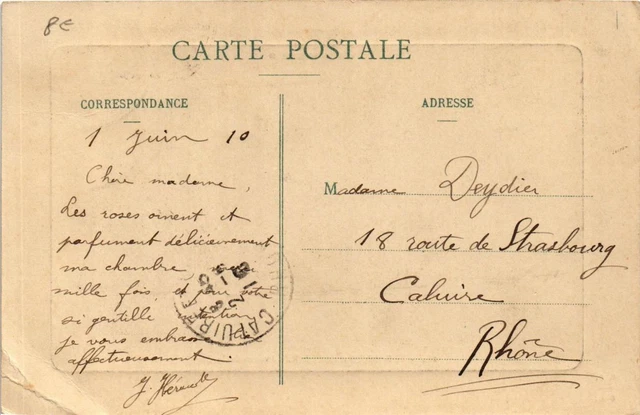 8€
CARTE POSTALE
CORRESPONDANCE
1 Juin 10
Chère madame,
Les roses ornent et
parfument délicieusement
ma chambre, merci
mille fois, et pour votre
si gentille attention
je vous embrasse
affectueusement.
ADRESSE
Madame Deydier
18 route de Strasbourg
Caluire
Rhône
CALUIRE